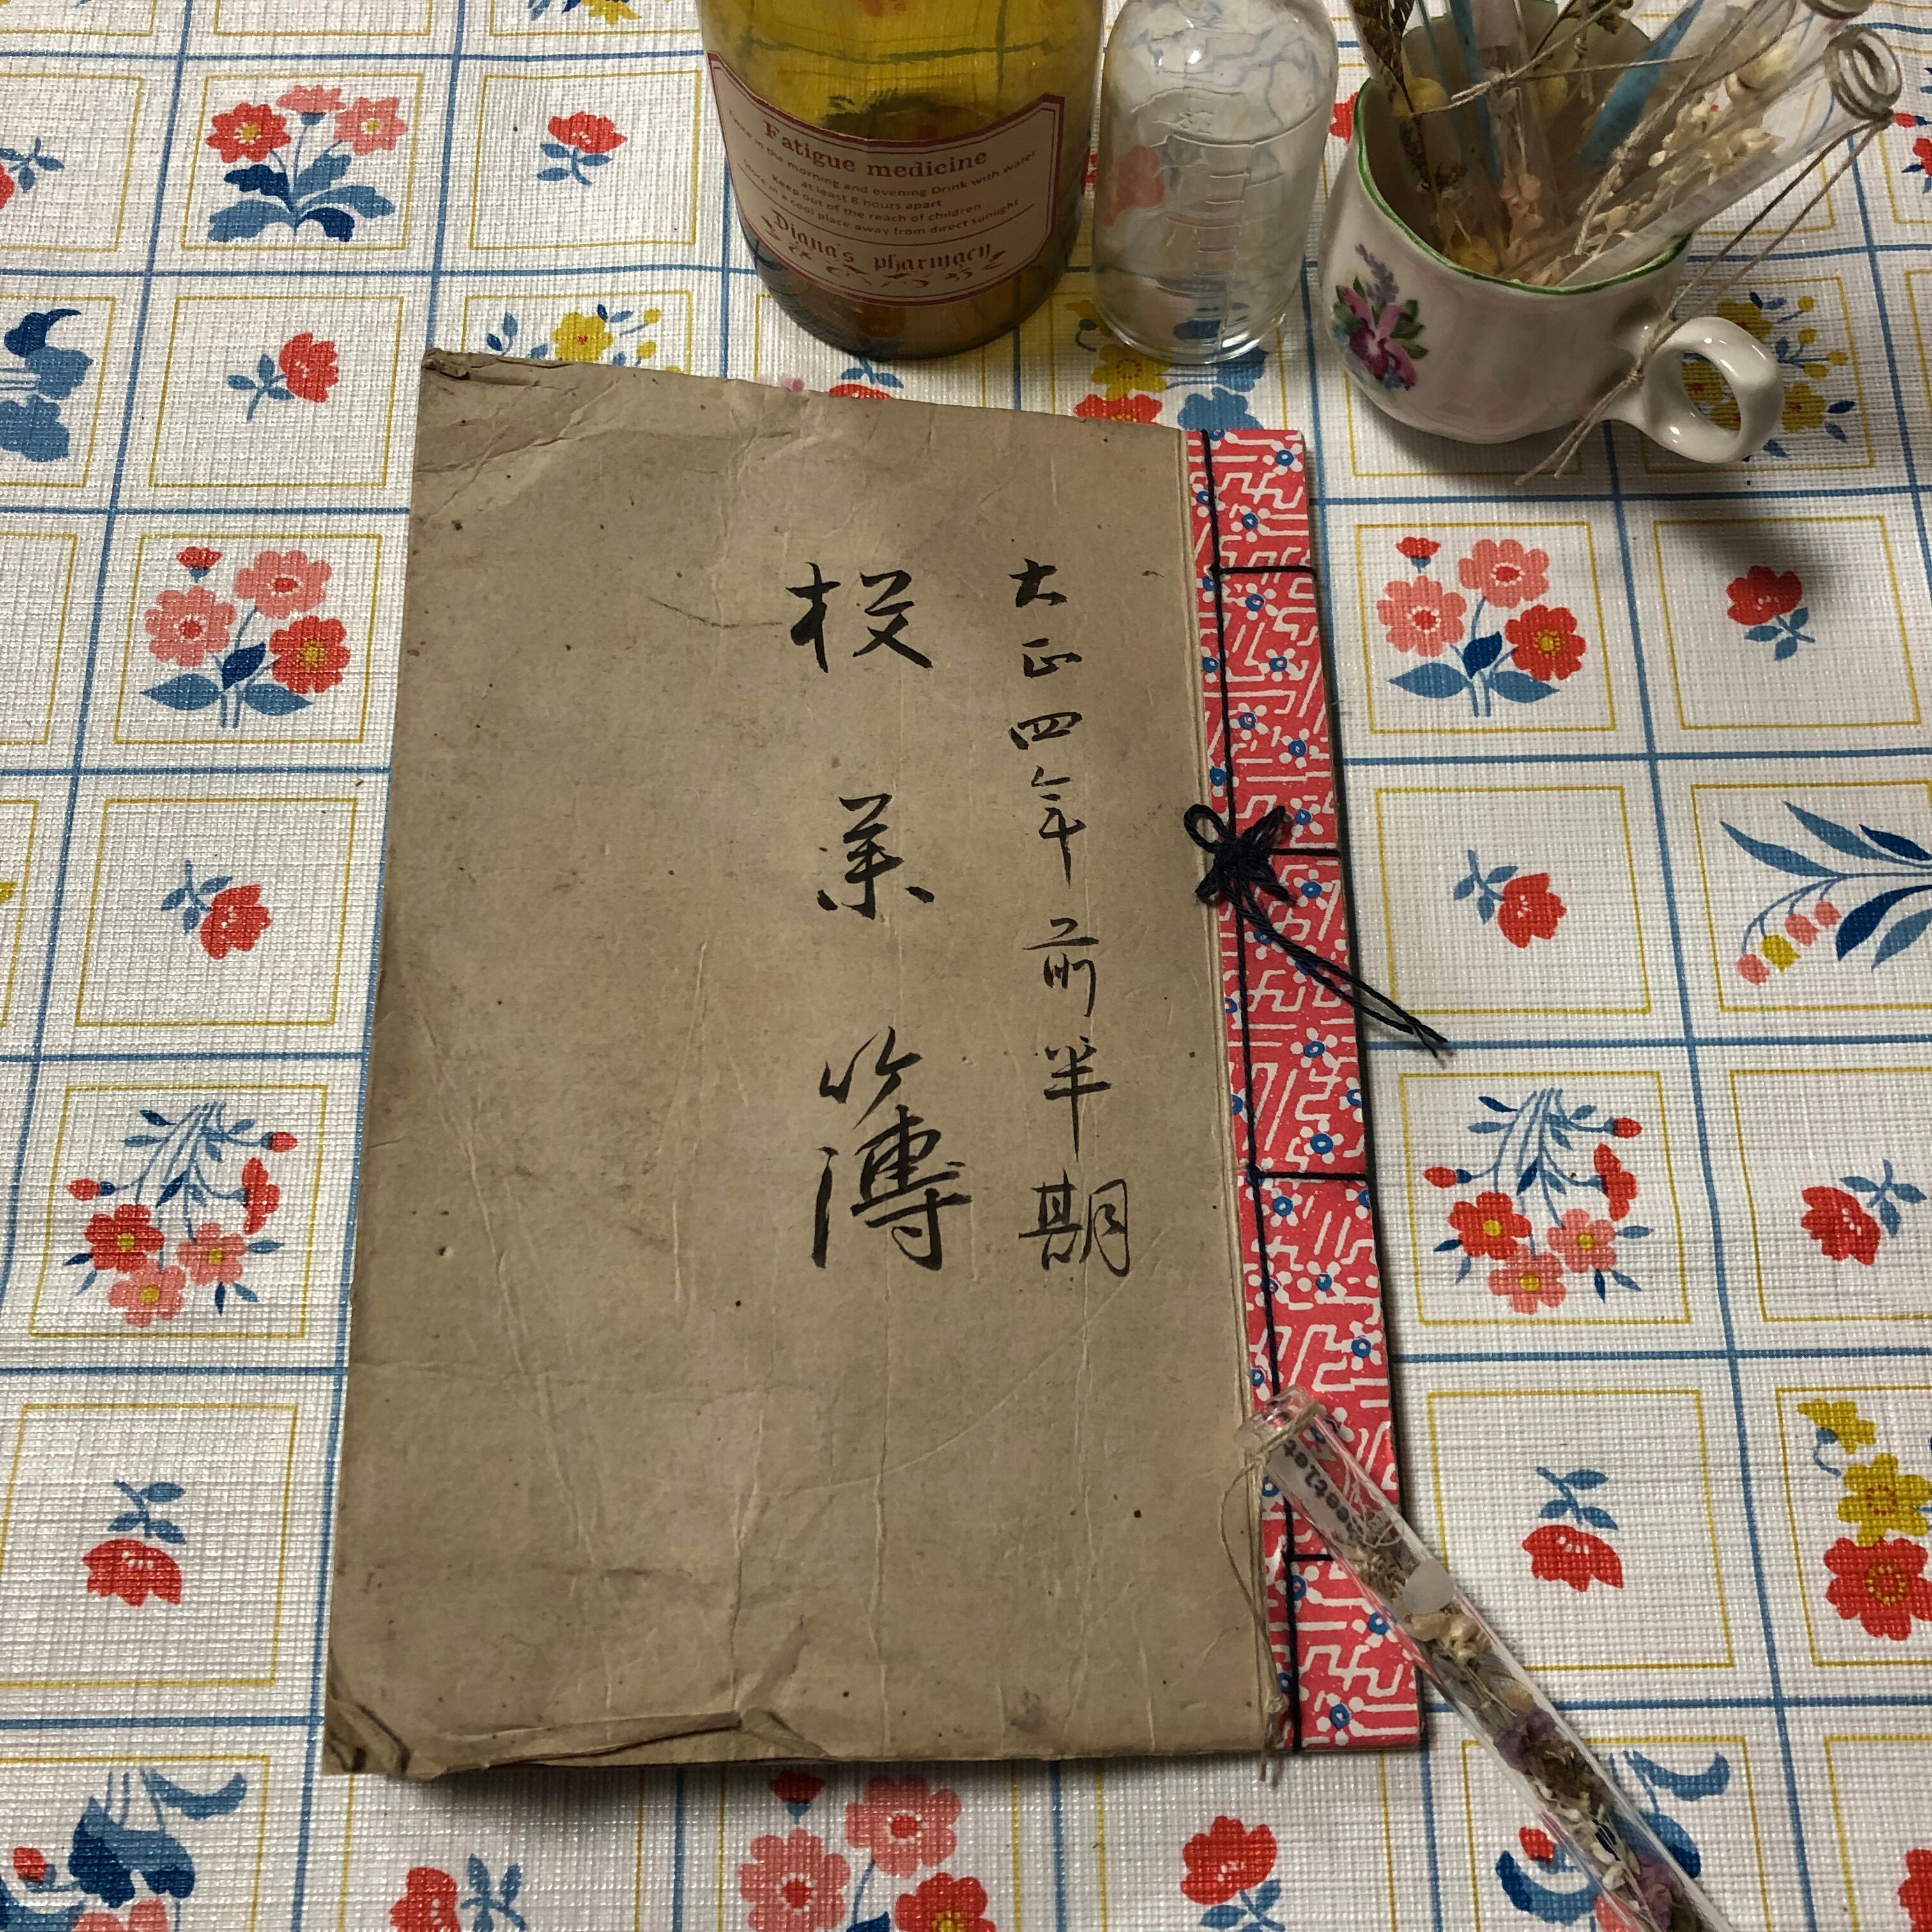 Fatigue medicine
Take in the morning and evening Drink with water
at least 8 hours apart
Keep out of the reach of children
Store in a cool place away from direct sunlight
Diana's pharmacy
大正四年前半期
業簿